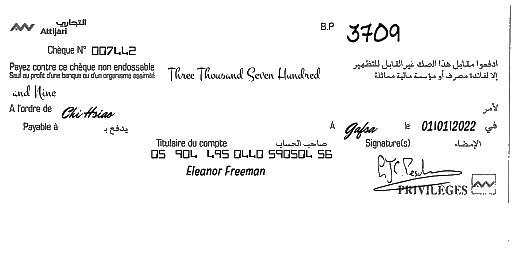 التجاري
Attijari
B.P 3709
Chèque N° 007442
Payez contre ce chèque non endossable
Sauf au profit d'une banque ou d'un organisme assimilé
ادفعوا مقابل هذا الصك غير القابل للتظهير
إلا لفائدة مصرف أو مؤسسة مالية مماثلة
Three Thousand Seven Hundred
and Nine
A l'ordre de Chi Hsiao لأمر
Payable à يدفع بـ
A Gafsa le 01/01/2022 في
Titulaire du compte صاحب الحساب
Signature(s) الإمضاء
05 904 495 0440 590504 56
Eleanor Freeman
PRIVILEGES